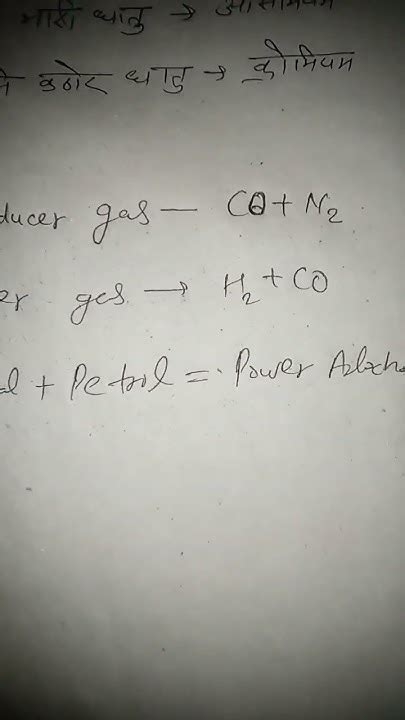 भारी धातु → ओसमियम
कठोर धातु → क्रोमियम
ducer gas — CO + N2
er ges → H2 + CO
+ Petrol = Power Alcho